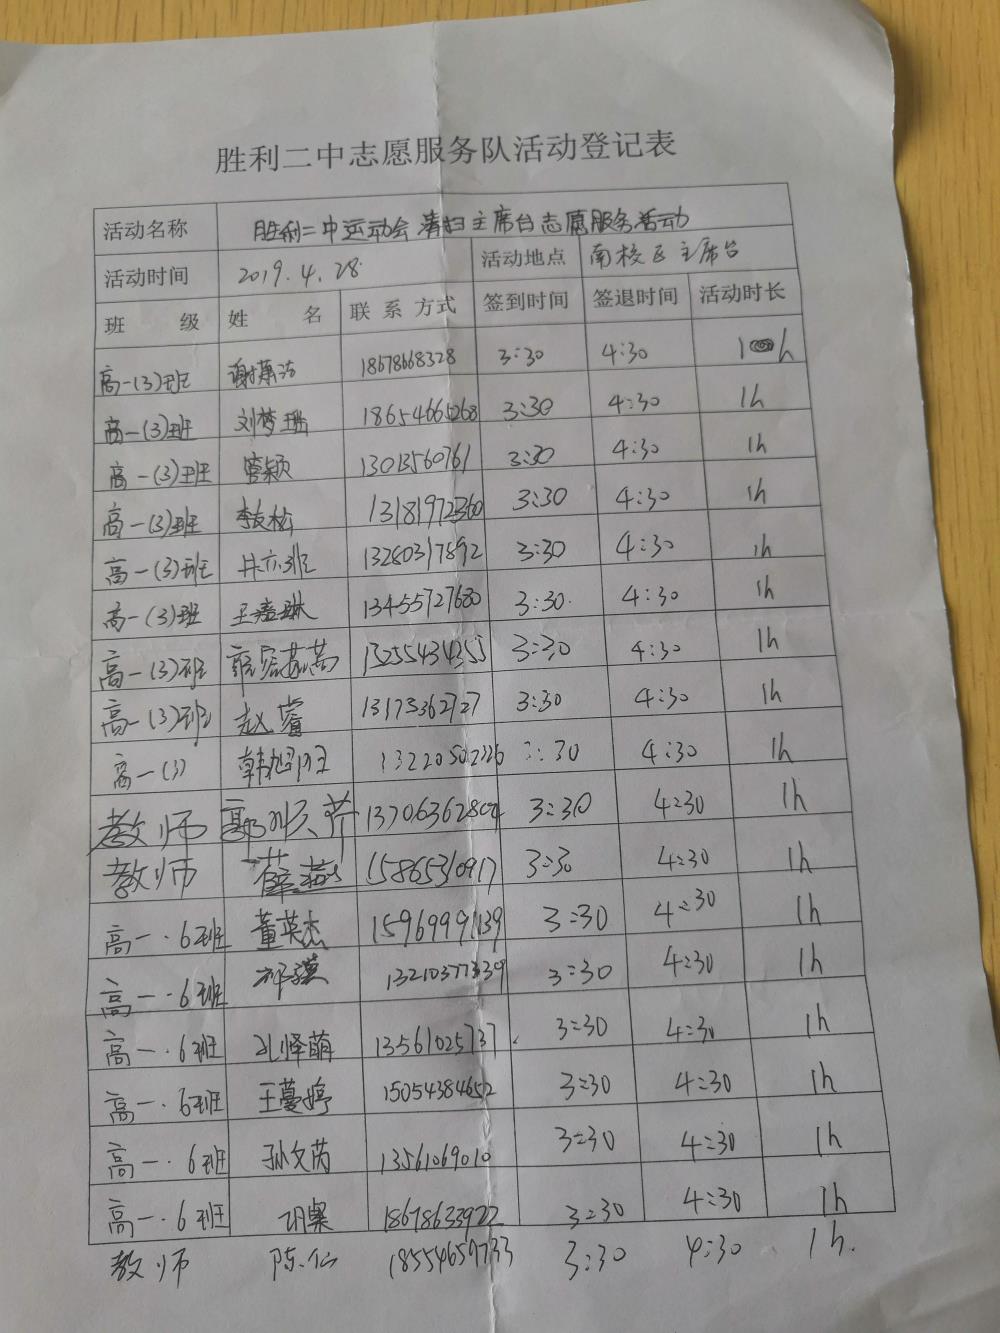 胜利二中志愿服务队活动登记表
活动名称 胜利二中运动会清扫主席台志愿服务活动
活动时间 2019.4.28 活动地点 南校区主席台
班 级 姓 名 联系方式 签到时间 签退时间 活动时长
高一(3)班 18678668328 3:30 4:30 1h
高一(3)班 刘梦珊 18654665268 3:30 4:30 1h
高一(3)班 管颖 13013560761 3:30 4:30 1h
高一(3)班 13181972360 3:30 4:30 1h
高一(3)班 井亦班 13280317892 3:30 4:30 1h
高一(3)班 13455727680 3:30. 4:30 1h
高一(3)班 13255434355 3:30 4:30 1h
高一(3)班 赵睿 13173362727 3:30 4:30 1h
高一(3) 13220502326 3:30 4:30 1h
教师 13706362804 3:30 4:30 1h
教师 薛燕 15865310917 3:30 4:30 1h
高一·6班 董英杰 15969991139 3:30 4:30 1h
高一·6班 13210377339 3:30 4:30 1h
高一·6班 孔怿萌 13561025737 3:30 4:30 1h
高一·6班 王蔓婷 15054384652 3:30 4:30 1h
高一·6班 孙文芮 13561069010 3:30 4:30 1h
高一·6班 18678633922 3:30 4:30 1h
教师 陈仏 18554659733 3:30 4:30 1h.